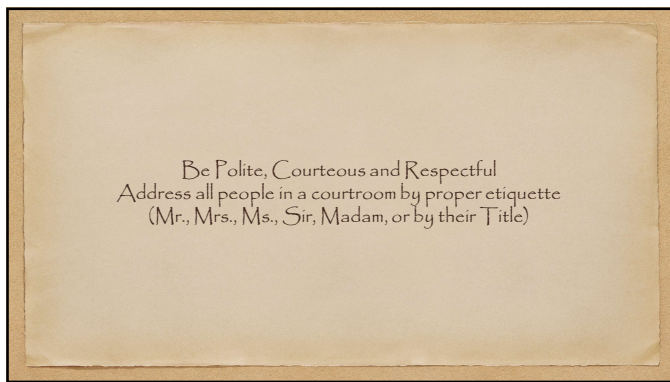 Be Polite, Courteous and Respectful
Address all people in a courtroom by proper etiquette
(Mr., Mrs., Ms., Sir, Madam, or by their Title)